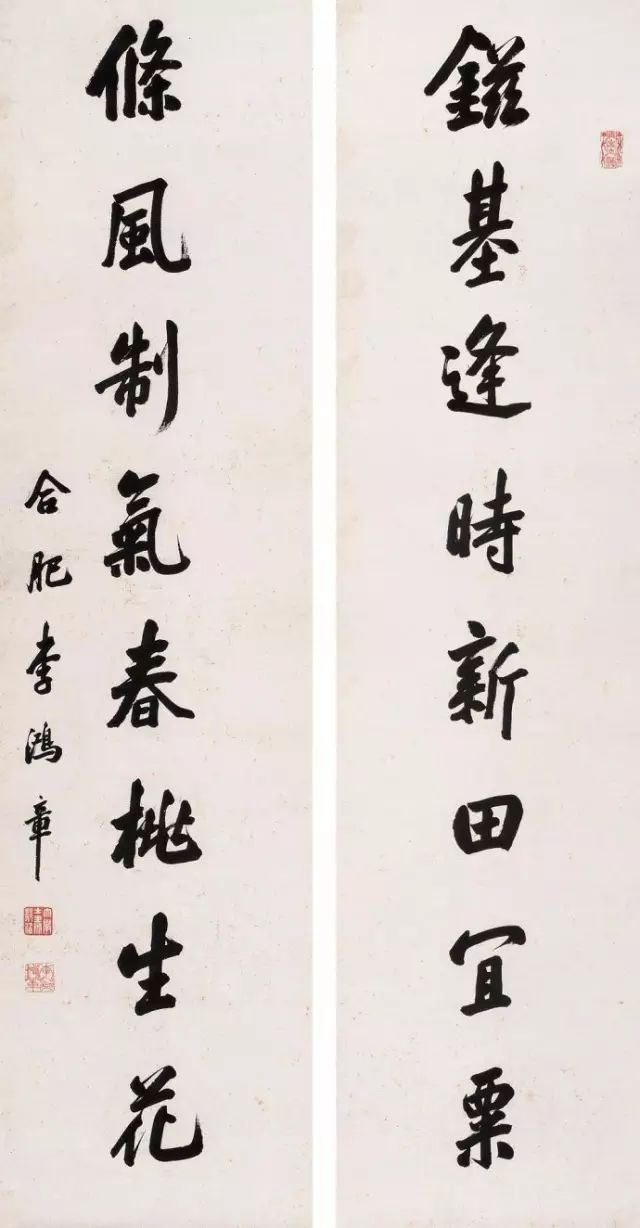 鎡基逢時新田宜粟
條風制氣春桃生花
合肥李鴻章